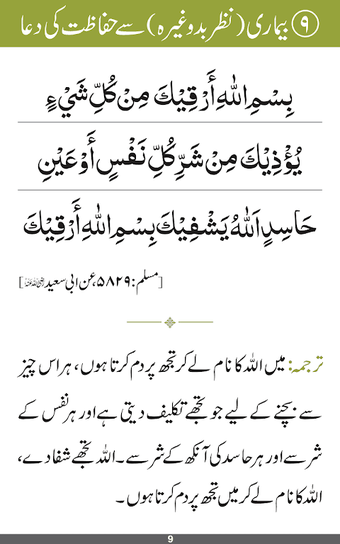 ۹ بیماری (نظر بد وغیرہ) سے حفاظت کی دعا
بِسْمِ اللهِ أَرْقِيْكَ مِنْ كُلِّ شَيْءٍ
يُؤْذِيْكَ مِنْ شَرِّ كُلِّ نَفْسٍ أَوْ عَيْنِ
حَاسِدٍ اَللهُ يَشْفِيْكَ بِسْمِ اللهِ أَرْقِيْكَ
[مسلم: ۵۸۲۹، عن ابی سعید ؓ]
ترجمہ: میں اللہ کا نام لے کر تجھ پر دم کرتا ہوں، ہر اس چیز
سے بچنے کے لیے جو تجھے تکلیف دیتی ہے اور ہر نفس کے
شر سے اور ہر حاسد کی آنکھ کے شر سے۔ اللہ تجھے شفا دے،
اللہ کا نام لے کر میں تجھ پر دم کرتا ہوں۔
9